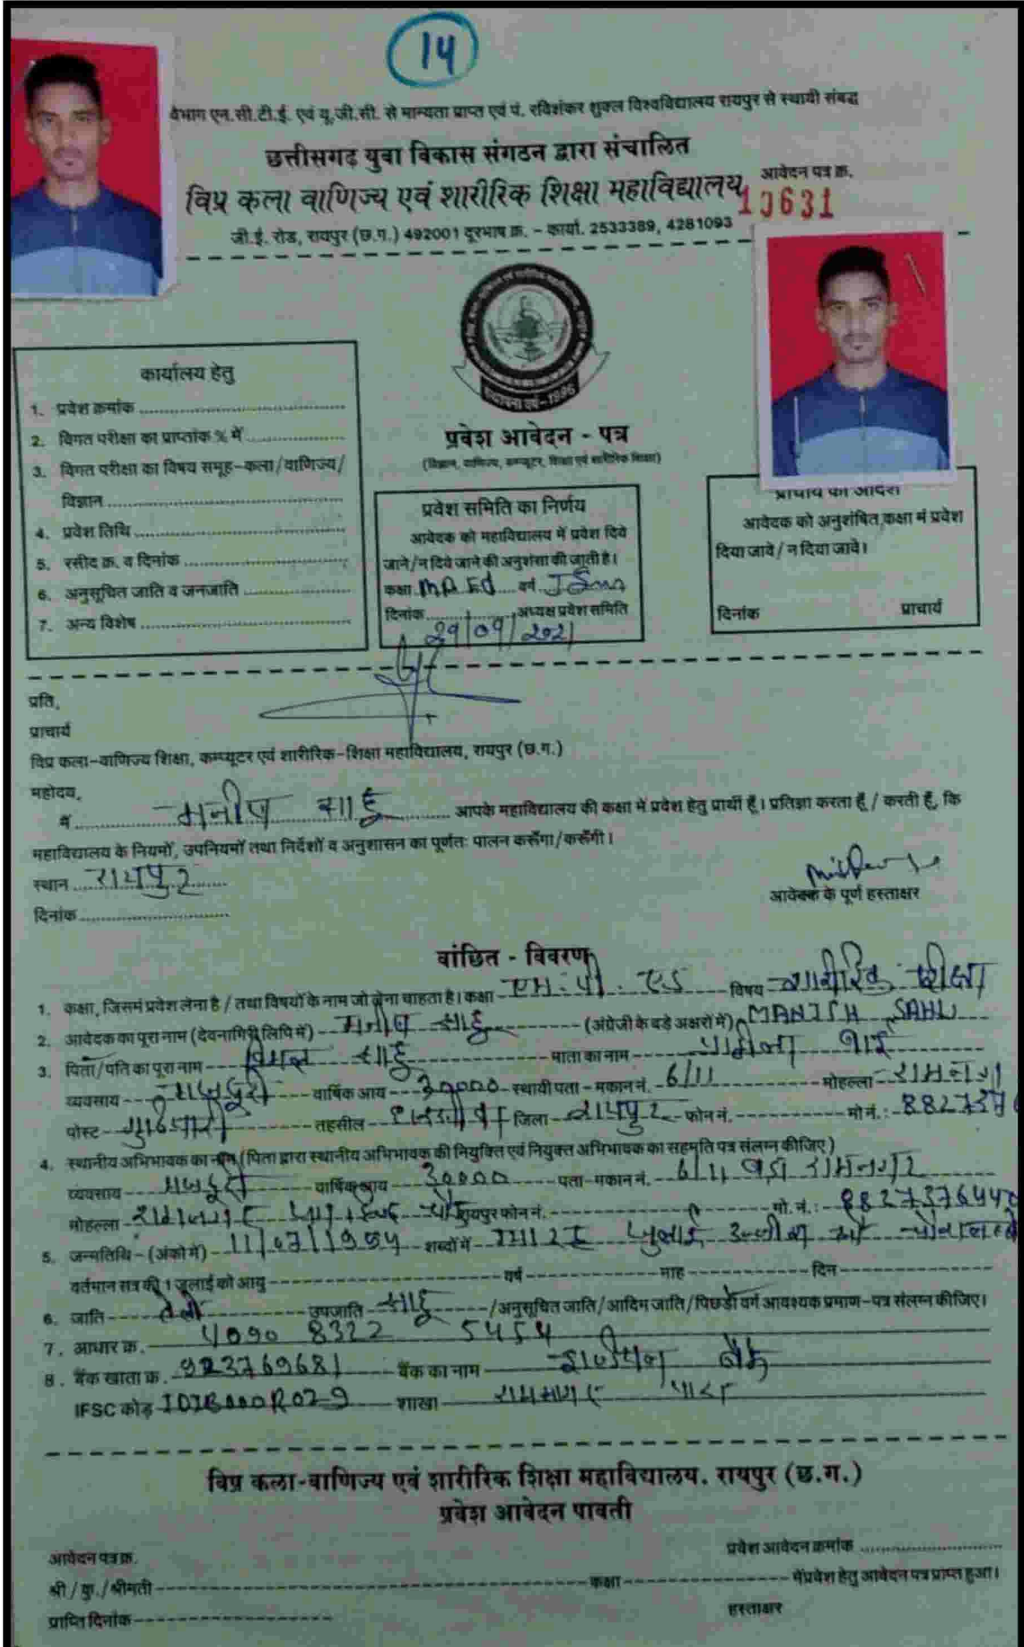 14
विभाग एन.सी.टी.ई. एवं यू.जी.सी. से मान्यता प्राप्त एवं पं. रविशंकर शुक्ल विश्वविद्यालय रायपुर से स्थायी संबद्ध
छत्तीसगढ़ युवा विकास संगठन द्वारा संचालित
विप्र कला वाणिज्य एवं शारीरिक शिक्षा महाविद्यालय
आवेदन पत्र क्र.
10631
जी.ई. रोड, रायपुर (छ.ग.) 492001 दूरभाष क्र. - कार्या. 2533389, 4281093
स्थापना वर्ष-1996
कार्यालय हेतु
1. प्रवेश क्रमांक
2. विगत परीक्षा का प्राप्तांक % में
3. विगत परीक्षा का विषय समूह-कला/वाणिज्य/
विज्ञान
4. प्रवेश तिथि
5. रसीद क्र. व दिनांक
6. अनुसूचित जाति व जनजाति
7. अन्य विशेष
प्रवेश आवेदन - पत्र
(विज्ञान, वाणिज्य, कम्प्यूटर, शिक्षा एवं शारीरिक शिक्षा)
प्रवेश समिति का निर्णय
आवेदक को महाविद्यालय में प्रवेश दिये
जाने/न दिये जाने की अनुशंसा की जाती है।
कक्षा M.P.Ed वर्ग I Sem
दिनांक अध्यक्ष प्रवेश समिति
29/09/2021
प्राचार्य का आदेश
आवेदक को अनुशंषित कक्षा में प्रवेश
दिया जावे/न दिया जावे।
दिनांक प्राचार्य
प्रति,
प्राचार्य
विप्र कला-वाणिज्य शिक्षा, कम्प्यूटर एवं शारीरिक-शिक्षा महाविद्यालय, रायपुर (छ.ग.)
महोदय,
मनीष साहू आपके महाविद्यालय की कक्षा में प्रवेश हेतु प्रार्थी हूँ। प्रतिज्ञा करता हूँ / करती हूँ, कि
महाविद्यालय के नियमों, उपनियमों तथा निर्देशों व अनुशासन का पूर्णतः पालन करूँगा/करूँगी।
स्थान रायपुर
दिनांक
आवेदक के पूर्ण हस्ताक्षर
वांछित - विवरण
1. कक्षा, जिसमें प्रवेश लेना है / तथा विषयों के नाम जो लेना चाहता है। कक्षा एम.पी. एड विषय शारीरिक शिक्षा
2. आवेदक का पूरा नाम (देवनागिरी लिपि में) मनीष साहू (अंग्रेजी के बड़े अक्षरों में) MANISH SAHU
3. पिता/पति का पूरा नाम साहू माता का नाम बाई
व्यवसाय मजदूरी वार्षिक आय 30000 स्थायी पता - मकान नं. 6/11 मोहल्ला रामनगर
पोस्ट गुढ़ियारी तहसील जिला रायपुर फोन नं. मो नं.: 8827376
4. स्थानीय अभिभावक का नाम (पिता द्वारा स्थानीय अभिभावक की नियुक्ति एवं नियुक्त अभिभावक का सहमति पत्र संलग्न कीजिए)
व्यवसाय मजदूरी वार्षिक आय 30000 पता-मकान नं. 6/11 रामनगर
मोहल्ला रामनगर चौक रायपुर फोन नं. मो. नं.: 8827376440
5. जन्मतिथि-(अंको में) 11/07/1994 शब्दों में ग्यारह जुलाई उन्नीस सौ चौरानब्बे
वर्तमान सत्र की 1 जुलाई को आयु वर्ष माह दिन
6. जाति तेली उपजाति साहू /अनुसूचित जाति/आदिम जाति/पिछड़ी वर्ग आवश्यक प्रमाण-पत्र संलग्न कीजिए।
7. आधार क्र. 4090 8322 5454
8. बैंक खाता क्र. 923769681 बैंक का नाम बैंक
IFSC कोड़ शाखा रामसागर पारा
विप्र कला-वाणिज्य एवं शारीरिक शिक्षा महाविद्यालय, रायपुर (छ.ग.)
प्रवेश आवेदन पावती
आवेदन पत्र क्र. प्रवेश आवेदन क्रमांक
श्री/कु./श्रीमती कक्षा में प्रवेश हेतु आवेदन पत्र प्राप्त हुआ।
प्राप्ति दिनांक हस्ताक्षर